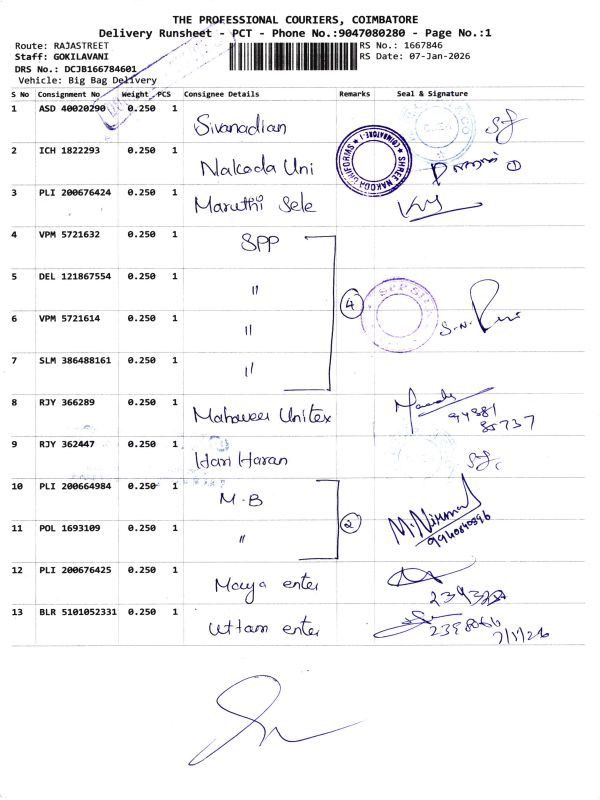 THE PROFESSIONAL COURIERS, COIMBATORE
Delivery Runsheet - PCT - Phone No.:9047080280 - Page No.:1
Route: RAJASTREET
Staff: GOKILAVANI
DRS No.: DCJB166784601
Vehicle: Big Bag Delivery
RS No.: 1667846
RS Date: 07-Jan-2026
S No Consignment No Weight PCS Consignee Details Remarks Seal & Signature
1 ASD 40020290 0.250 1 Sivanadian
2 ICH 1822293 0.250 1 Nakoda Uni SHREE NAKODA UNIFORMS COIMBATORE-1
3 PLI 200676424 0.250 1 Maruthi Sele
4 VPM 5721632 0.250 1 SPP
5 DEL 121867554 0.250 1 "
4
6 VPM 5721614 0.250 1 "
7 SLM 386488161 0.250 1 "
8 RJY 366289 0.250 1 Mahaveer Unitex 94881
85737
9 RJY 362447 0.250 1 Hari Haran
10 PLI 200664984 0.250 1 M.B M.Nirmal
2
11 POL 1693109 0.250 1 "
12 PLI 200676425 0.250 1 Maya enter
13 BLR 5101052331 0.250 1 Uttam enter 2398066
7/1/26